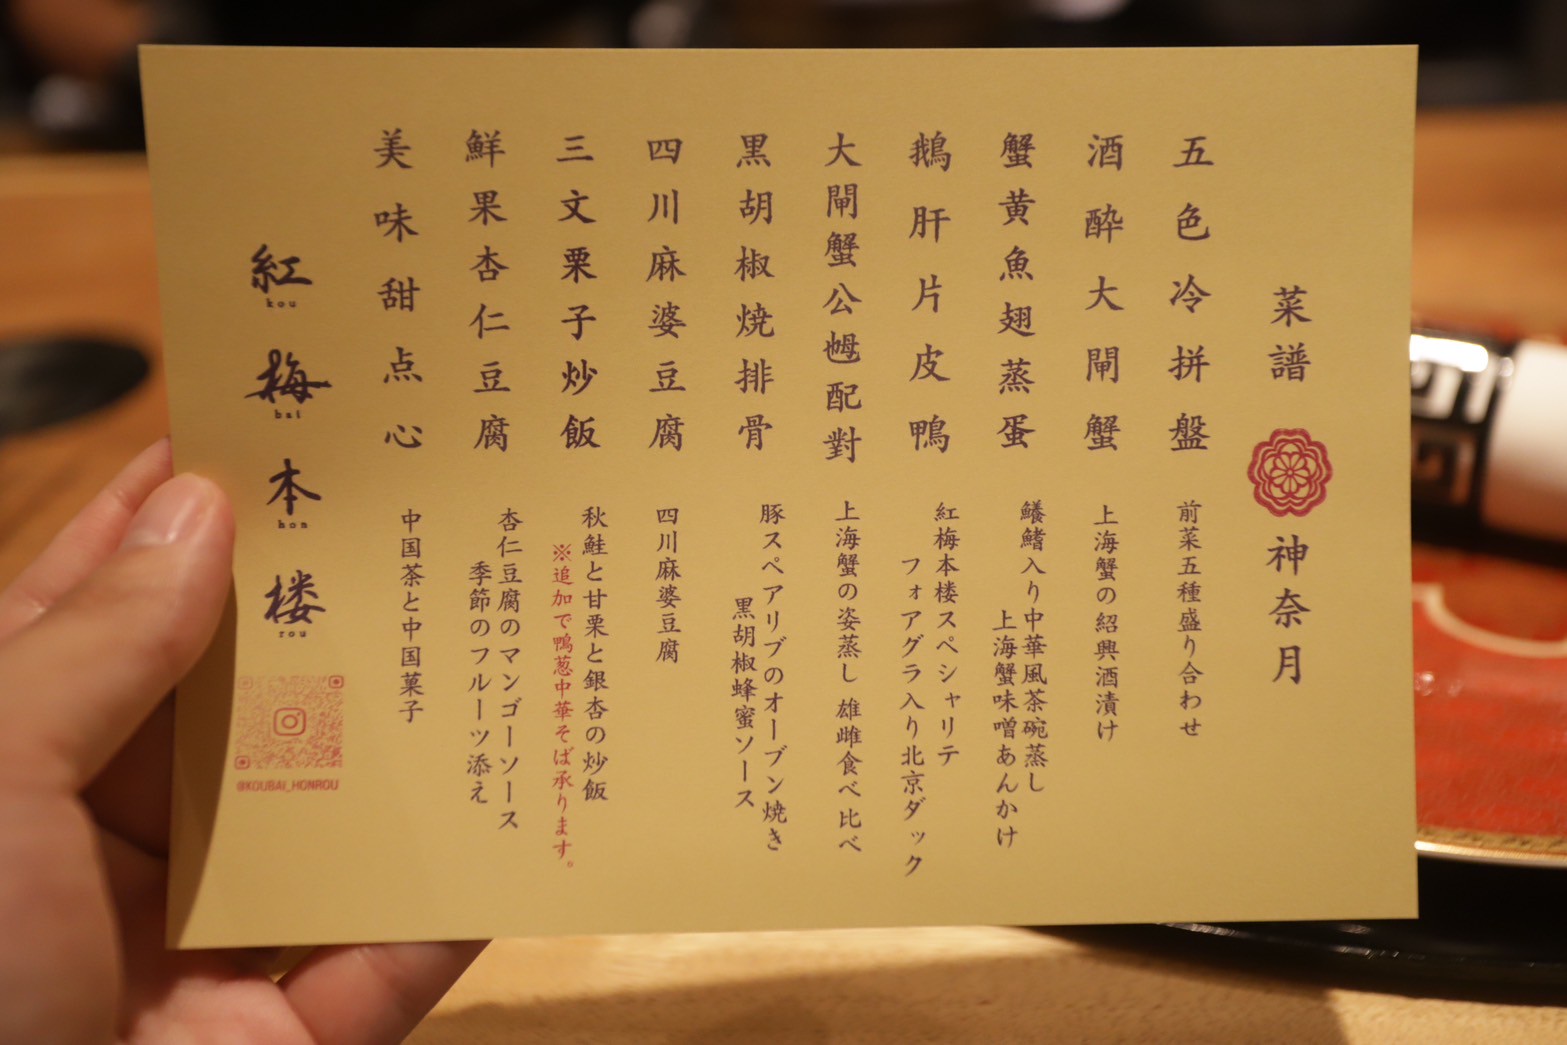 菜譜 神奈月
五色冷拼盤
前菜五種盛り合わせ
酒酔大閘蟹
上海蟹の紹興酒漬け
蟹黄魚翅蒸蛋
鱶鰭入り中華風茶碗蒸し
上海蟹味噌あんかけ
鵝肝片皮鴨
紅梅本楼スペシャリテ
フォアグラ入り北京ダック
大閘蟹公乸配對
上海蟹の姿蒸し 雄雌食べ比べ
黒胡椒焼排骨
豚スペアリブのオーブン焼き
黒胡椒蜂蜜ソース
四川麻婆豆腐
四川麻婆豆腐
三文栗子炒飯
秋鮭と甘栗と銀杏の炒飯
※追加で鴨葱中華そば承ります。
鮮果杏仁豆腐
杏仁豆腐のマンゴーソース
季節のフルーツ添え
美味甜点心
中国茶と中国菓子
紅梅本楼
kou bai hon rou
@KOUBAI_HONROU